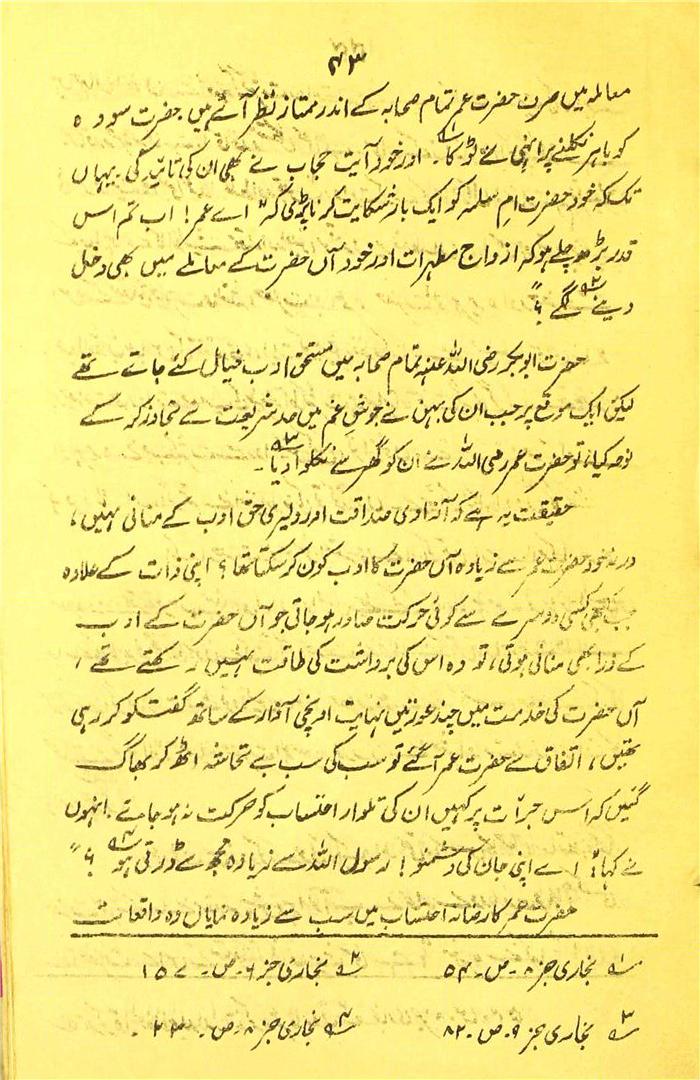 ۴۳
معاملہ میں صرف حضرت عمر تمام صحابہ کے اندر ممتاز نظر آتے ہیں حضرت سودہ
کو باہر نکلنے پر انہی نے ٹوکا۱؎۔ اور خود آیت حجاب نے بھی ان کی تائید کی۔ یہاں
تک کہ خود حضرت ام سلمہ کو ایک بار شکایت کرنا پڑی کہ "اے عمر! اب تم اس
قدر بڑھ چلے ہو کہ ازواج مطہرات اور خود آں حضرت کے معاملے میں بھی دخل
دینے لگے۲؎؟"
حضرت ابوبکر رضی اللہ عنہ تمام صحابہ میں مستحق ادب خیال کئے جاتے تھے
لیکن ایک موقع پر جب ان کی بہن نے جوش غم میں حد شریعت سے تجاوز کر کے
نوحہ کیا، تو حضرت عمر رضی اللہ نے ان کو گھر سے نکلوا دیا۳؎۔
حقیقت یہ ہے کہ آزادی صداقت اور دلیری حق ادب کے منافی نہیں،
ورنہ خود حضرت عمر سے زیادہ آں حضرت کا ادب کون کر سکتا تھا؟ اپنی ذات کے علاوہ
جب کبھی کسی دوسرے سے کوئی حرکت صادر ہو جاتی جو آں حضرت کے ادب
کے ذرا بھی منافی ہوتی، تو وہ اس کی برداشت کی طاقت نہیں۔ رکھتے تھے،
آں حضرت کی خدمت میں چند عورتیں نہایت اونچی آواز کے ساتھ گفتگو کر رہی
تھیں، اتفاق سے حضرت عمر آ گئے تو سب کی سب بے تحاشہ اٹھ کر بھاگ
گئیں کہ اس جرأت پر کہیں ان کی تلوار احتساب کو حرکت نہ ہو جائے۔ انہوں
نے کہا: "اے اپنی جان کی دشمنو! رسول اللہ سے زیادہ مجھ سے ڈرتی ہو۴؎؟"
حضرت عمر کا رضانہ احتساب میں سب سے زیادہ نمایاں وہ واقعات
۱؎ بخاری جز ۸۔ ص۔ ۵۴ ۲؎ بخاری جز ۶۔ ص۔ ۱۵۷
۳؎ بخاری جز ۹۔ ص۔ ۸۲ ۴؎ بخاری جز ۸۔ ص۔ ۲۳۔